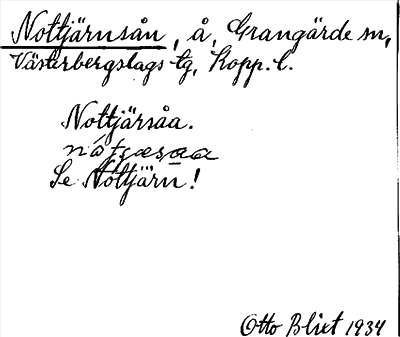 Nottjärnsån, å, Grangärde sn,
Västerbergslags tg, Kopp. l.
Nottjärsåa.
Se Nottjärn!
Otto Blixt 1934